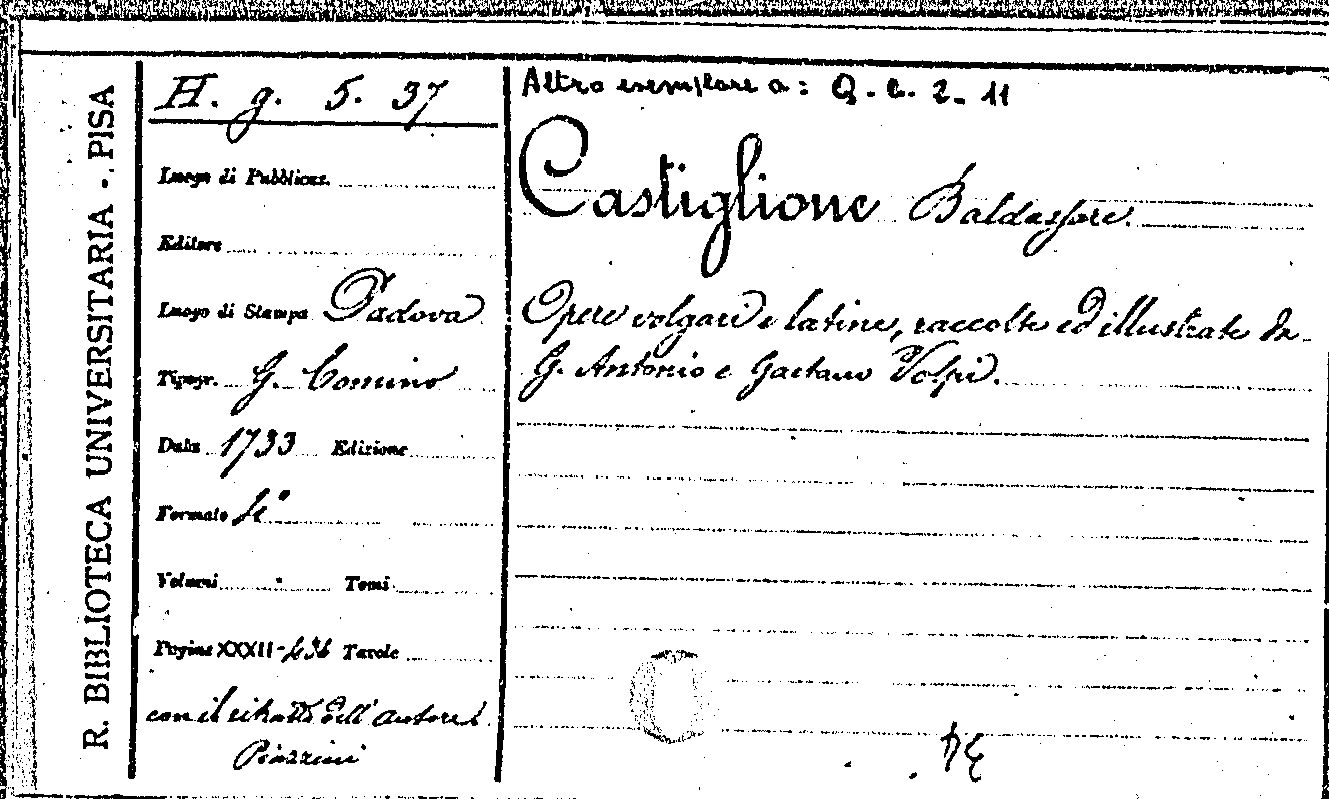 R. BIBLIOTECA UNIVERSITARIA - PISA
H. g. 5. 37
Luogo di Pubblicaz.
Editore
Luogo di Stampa Padova
Tipogr. G. Comino
Data 1733 Edizione
Formato 4°
Volumi Tomi
Pagine XXXII-436 Tavole
con il ritratto dell'autore
Piazzini
Altro esemplare a: Q. c. 2. 11
Castiglione Baldassare.
Opere volgari e latine, raccolte ed illustrate da
G. Antonio e Gaetano Volpi.